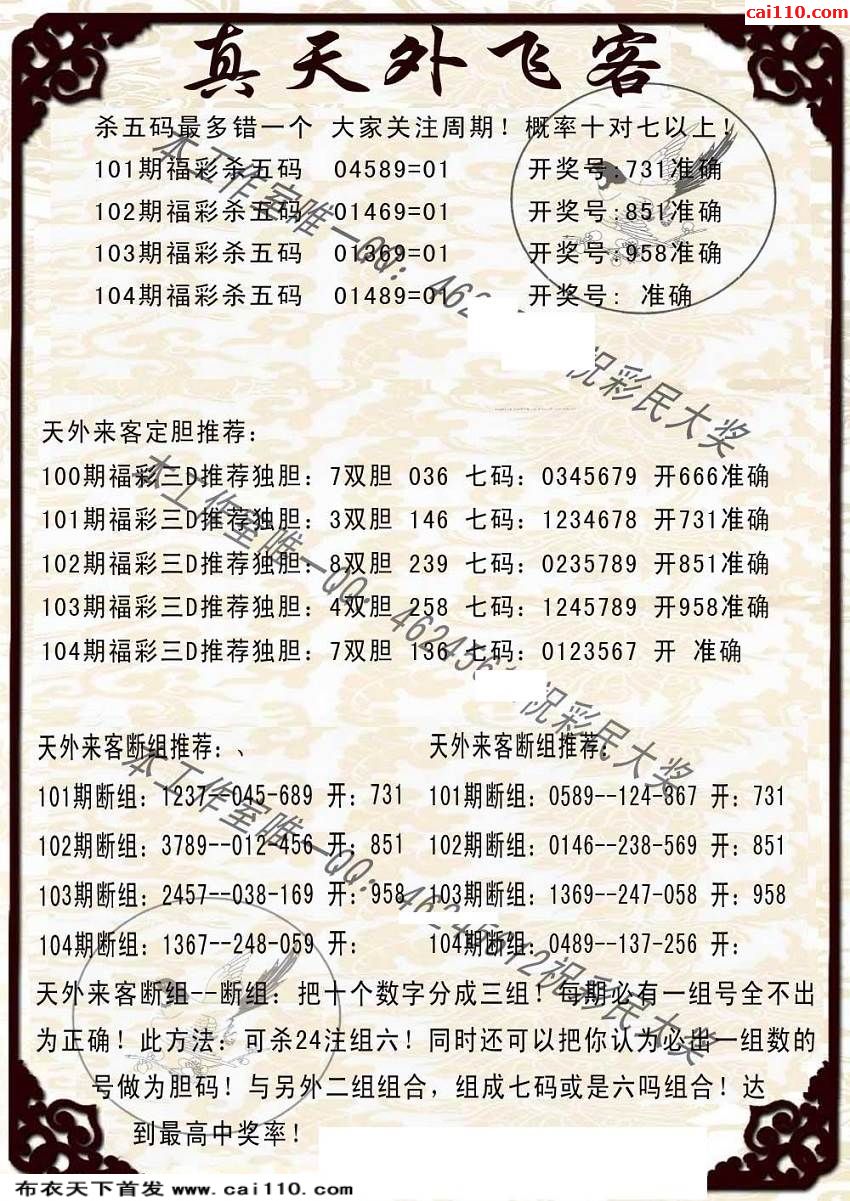 cai110.com
真天外飞客
杀五码最多错一个 大家关注周期！概率十对七以上！
101期福彩杀五码 04589=01 开奖号:731准确
102期福彩杀五码 01469=01 开奖号:851准确
103期福彩杀五码 01369=01 开奖号:958准确
104期福彩杀五码 01489=01 开奖号: 准确
本工作室唯一QQ: 462 祝彩民大奖
天外来客定胆推荐：
100期福彩三D推荐独胆：7双胆 036 七码：0345679 开666准确
101期福彩三D推荐独胆：3双胆 146 七码：1234678 开731准确
102期福彩三D推荐独胆：8双胆 239 七码：0235789 开851准确
103期福彩三D推荐独胆：4双胆 258 七码：1245789 开958准确
104期福彩三D推荐独胆：7双胆 136 七码：0123567 开 准确
本工作室唯一QQ: 462456 祝彩民大奖
天外来客断组推荐：、
101期断组：1237--045-689 开：731
102期断组：3789--012-456 开：851
103期断组：2457--038-169 开：958
104期断组：1367--248-059 开：
天外来客断组推荐：
101期断组：0589--124-367 开：731
102期断组：0146--238-569 开：851
103期断组：1369--247-058 开：958
104期断组：0489--137-256 开：
本工作室唯一QQ: 祝彩民大奖
天外来客断组--断组：把十个数字分成三组！每期必有一组号全不出
为正确！此方法：可杀24注组六！同时还可以把你认为必出一组数的
号做为胆码！与另外二组组合，组成七码或是六吗组合！达
到最高中奖率！
布衣天下首发 www.cai110.com